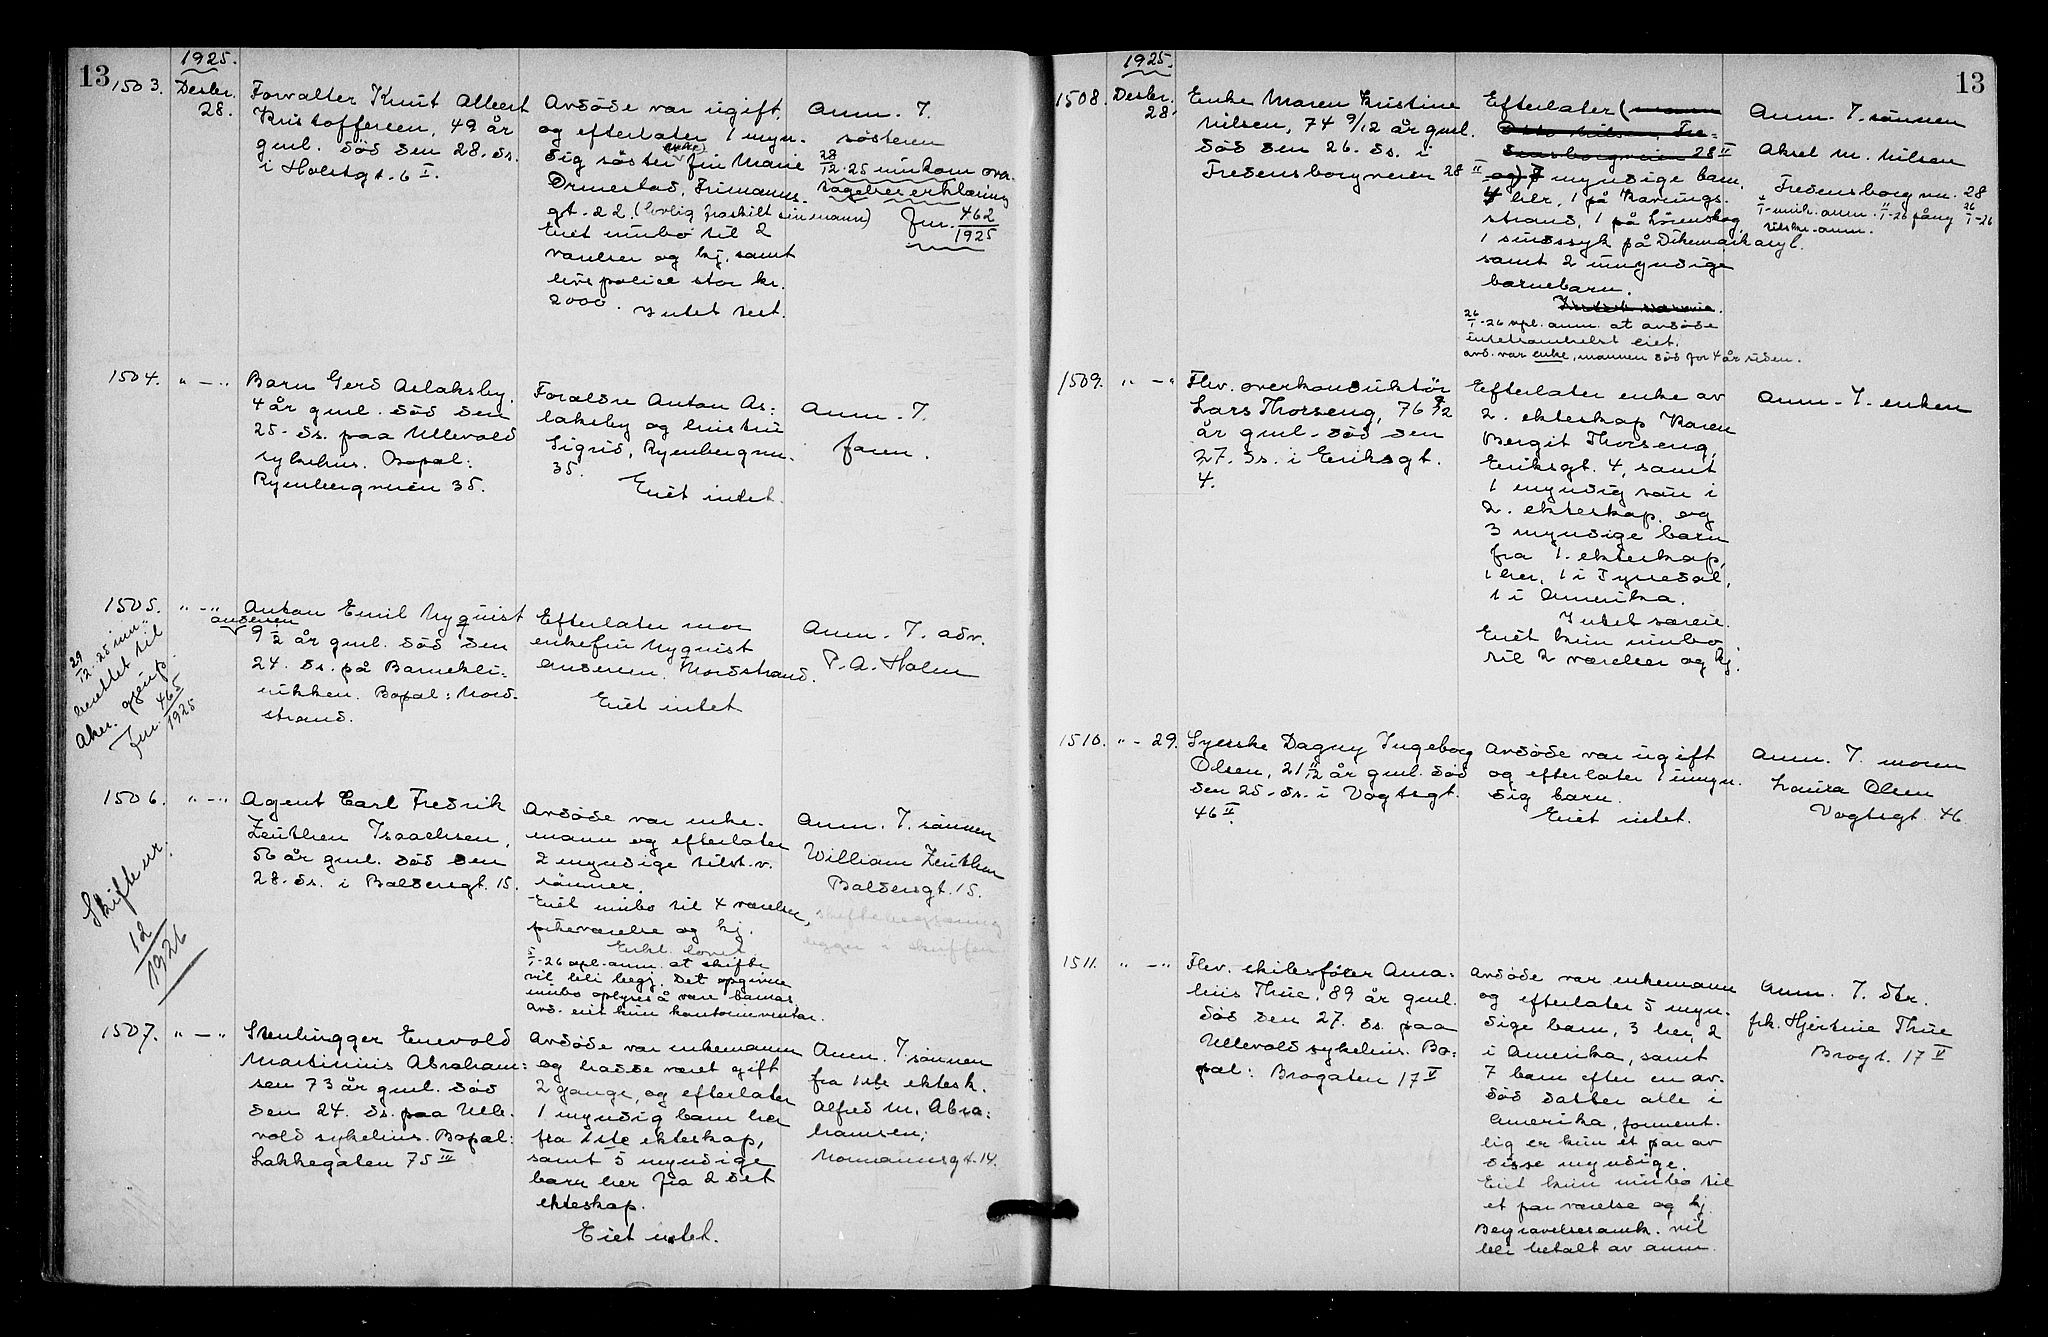 13
1925.
1503. Desbr. 28.
Forvalter Knut Albert
Kristoffersen, 49 år
gml. død den 28. ds.
i Holstgt. 6 I.
Avdøde var ugift
og efterlater 1 myn-
dig søster fru Marie
Ormestad, Frimanns-
gt. 22. (lovlig fraskilt sin mann)
Eiet innbo til 2
værelser og kj. samt
livspolice stor kr.
2000. Intet sert.
Anm. J.
søsteren
28/12-25 innkom ova-
tagelseserklæring
Jnr. 462/1925
1504. " — "
Barn Gerd Aslaksby,
4 år gml. død den
25. ds. paa Ullevold
sykehus. Bopæl:
Rynbergveien 35.
Foreldre Anton As-
laksby og hustru
Sigrid, Rynbergvn.
35.
Eiet intet.
Anm. J.
faren.
1505. " — "
29/12-25 inn-
berettet til
Aker. 
Jnr. 465/1925
Anton Emil Nyquist
Andersen
9 /2 år gml. død den
24. ds. på Barnekli-
nikken. Bopæl: Nord-
strand.
Efterlater mor
enkefru Nyquist
Andersen, Nordstrand.
Eiet intet
Anm. J. adv.
P. A. Holm
1506. " — "
Skifte nr.
12/1926
Agent Carl Fredrik
Zeuthen Isaachsen,
56 år gml. død den
28. ds. i Baldersgt. 15.
Avdøde var enke-
mann og efterlater
2 myndige tilst. v.
sønner.
Eiet innbo til 4 værelser,
pikeværelse og kj.
Erkl. lovet
5/1-26 opl. anm. at skifte
vil bli begj. Det opgivne
innbo oplyses å være barnas,
avd. eiet kun kontorinventar.
Anm. J. sønnen
William Zeuthen
Baldersgt. 15.
skiftebegjæring
ligger i skuffen
1507. " — "
Stenhugger Enevold
Martinius Abraham-
sen 73 år gml. død
den 24. ds. paa Ulle-
vold sykehus. Bopæl:
Lakkegaten 75 III
Avdøde var enkemann
og hadde været gift
2 gange, og efterlater
1 myndig barn her
fra 1ste ekteskap,
samt 5 myndige
barn her fra 2det
ekteskap.
Eiet intet.
Anm. J. sønnen
fra 1ste ektesk.
Alfred M. Abra-
hamsen,
Normannsgt. 14.
13
1925.
1508. Desbr. 28.
Enke Maren Kristine
Nilsen, 74 9/12 år gml.
død den 26. ds. i
Fredensborgveien 28 II
Efterlater (mann
Nilsen Fre-
densborgveien 28 II
og) 7 myndige barn,
4 her, 1 på Kavrings-
strand, 1 på Lørenskog,
1 sindssyk på Dikemark asyl.
samt 2 umyndige
barnebarn.
Intet særeie.
26/1-26 opl. anm. at avdøde
intetsomhelst eiet.
avd. var enke, mannen død for 4 år siden.
Anm. J. sønnen
Aksel M. Nilsen
Fredensborgvn. 28
1509. " — "
Fhv. overkonduktør
Lars Thorseng, 76 /2
år gml. død den
27. ds. i Eriksgt.
4.
Efterlater enke av
2. ekteskap Karen
Bergit Thorseng,
Eriksgt. 4, samt
1 myndig sønn i
2. ekteskap og
3 myndige barn
fra 1. ekteskap,
1 her, 1 i Tynedal,
1 i Amerika.
Intet særeie.
Eiet kun innbo
til 2 værelser og kj.
Anm. J. enken
1510. " - 29.
Syerske Dagny Ingeborg
Olsen, 21 11/12 år gml. død
den 25. ds. i Vogtsgt.
46 II.
Avdøde var ugift
og efterlater 1 umyn-
dig barn.
Eiet intet.
Anm. J. moren
Laura Olsen
Vogtsgt. 46
1511. " — "
Fhv. skibsfører Ama-
lius Thue, 89 år gml.
død den 27. ds. paa
Ullevold sykehus. Bo-
pæl: Brogaten 17 V
Avdøde var enkemann
og efterlater 5 myn-
dige barn, 3 her, 2
i Amerika, samt
7 barn efter en av-
død datter alle i
Amerika, forment-
lig er kun et par av
disse myndige.
Eiet kun innbo til
et par værelse og kj.
Begravelsesomk. vil
bli betalt av anm.
Anm. J. dtr.
frk. Hjertine Thue
Brogt. 17 V